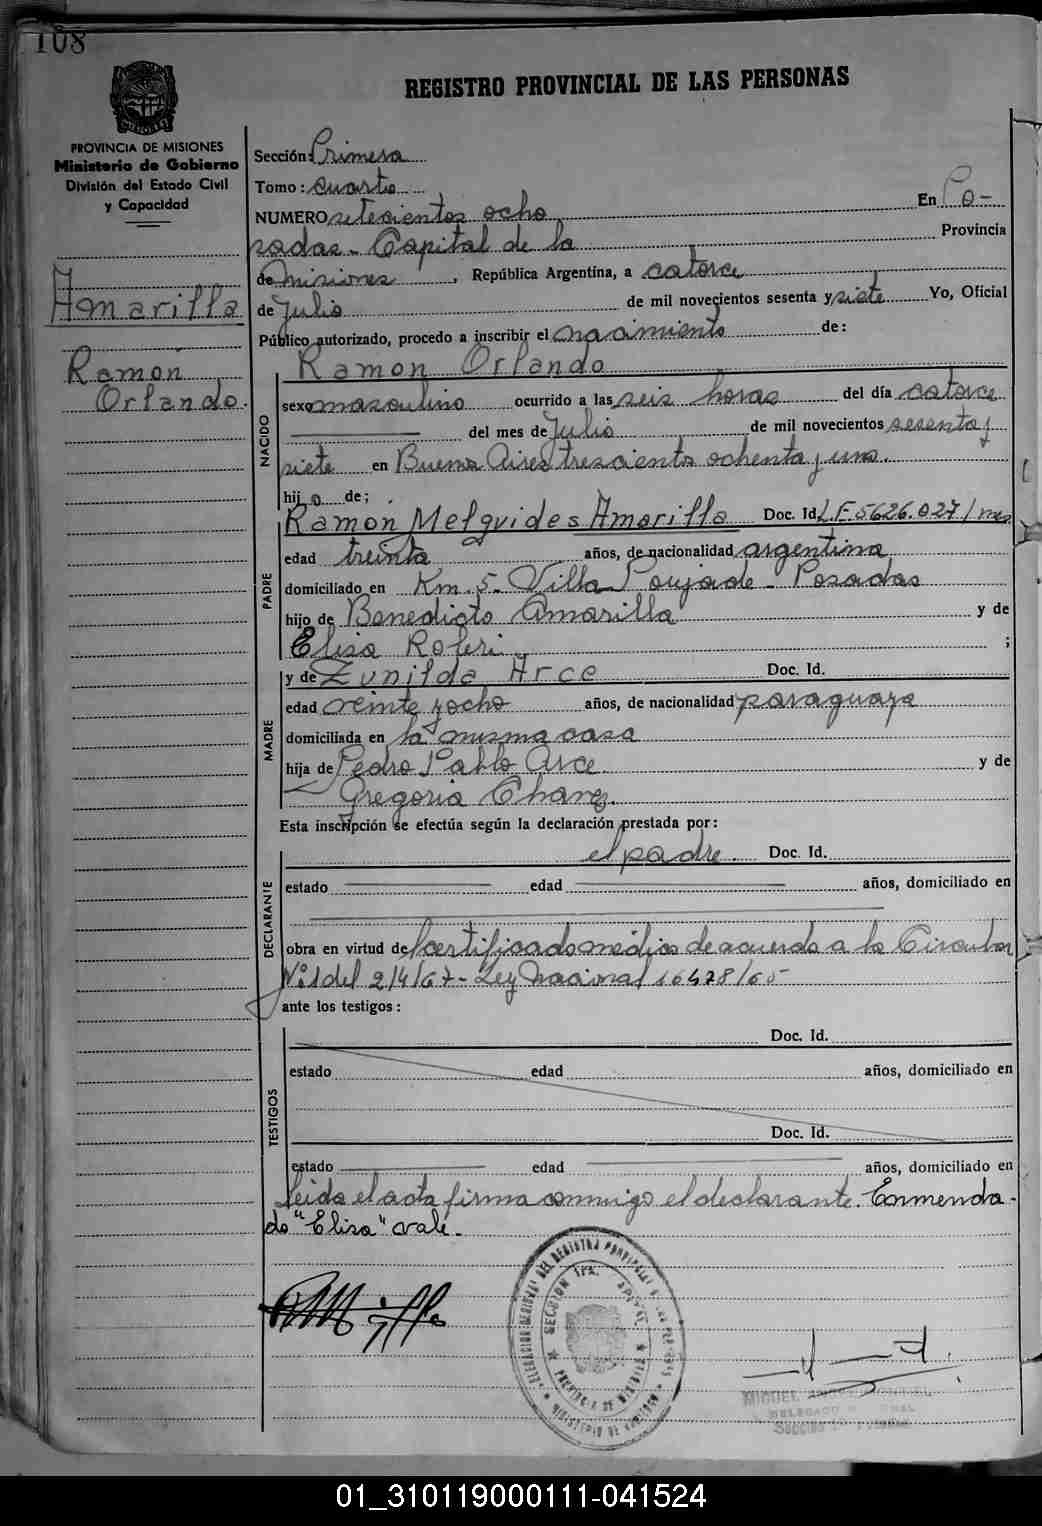 108
REGISTRO PROVINCIAL DE LAS PERSONAS
PROVINCIA DE MISIONES
Ministerio de Gobierno
División del Estado Civil
y Capacidad
Amarilla
Ramon
Orlando.
Sección: Primera
Tomo: cuarto
NUMERO setecientos ocho En Po-
sadas - Capital de la Provincia
de Misiones, República Argentina, a catorce
de Julio de mil novecientos sesenta y siete Yo, Oficial
Público autorizado, procedo a inscribir el nacimiento de:
Ramon Orlando
NACIDO
sexo masculino ocurrido a las seis horas del día catorce
del mes de Julio de mil novecientos sesenta y
siete en Buenos Aires trescientos ochenta y uno.
hijo de;
PADRE
Ramon Melquides Amarilla Doc. Id. L.E. 5626.027/mes
edad treinta años, de nacionalidad argentina
domiciliado en Km. 5 - Villa Poujade - Posadas
hijo de Benedicto Amarilla y de
Elisa Roleri ;
MADRE
y de Zunilda Arce Doc. Id.
edad veinte y ocho años, de nacionalidad paraguaya
domiciliada en la misma casa
hija de Pedro Pablo Arce y de
Gregoria Chavez.
Esta inscripción se efectúa según la declaración prestada por:
DECLARANTE
el padre. Doc. Id.
estado edad años, domiciliado en
obra en virtud de certificado médico de acuerdo a la Circular
Nº 1 del 2/4/67 - Ley Nacional 16478/65
ante los testigos:
TESTIGOS
Doc. Id.
estado edad años, domiciliado en
Doc. Id.
estado edad años, domiciliado en
Leida el acta firma conmigo el declarante. Enmenda-
do "Elisa" vale.
SECCION 1ra.
PROVINCIA DE MISIONES
MINISTERIO DE GOBIERNO
MIGUEL
DELEGADO
01_310119000111-041524